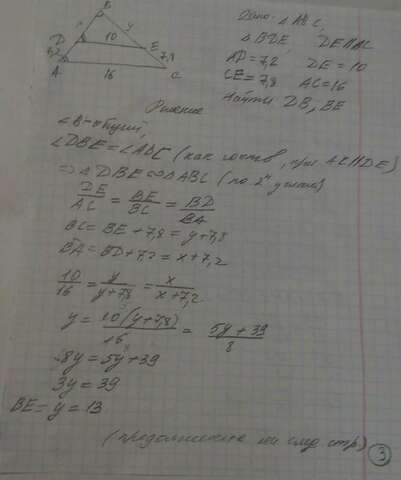 B
x y
D 10 E
7,2 7,8
A 16 C
Дано: △ABC,
△BDE, DE∥AC
AD=7,2, DE=10
CE=7,8 AC=16
Найти DB, BE
Решение
∠B-общий,
∠DBE=∠ABC (как соотв, при AC∥DE)
⇒△DBE∾△ABC (по 2м углам)
DE/AC = BE/BC = BD/BA
BC=BE+7,8=y+7,8
BA=BD+7,2=x+7,2
10/16 = y/(y+7,8) = x/(x+7,2)
y = 10(y+7,8)/16 = (5y+39)/8
8y=5y+39
3y=39
BE=y=13
(продолжение на след стр)
3